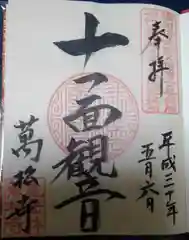 奉拝
平成三十年
五月六日
十一面観音
萬松寺